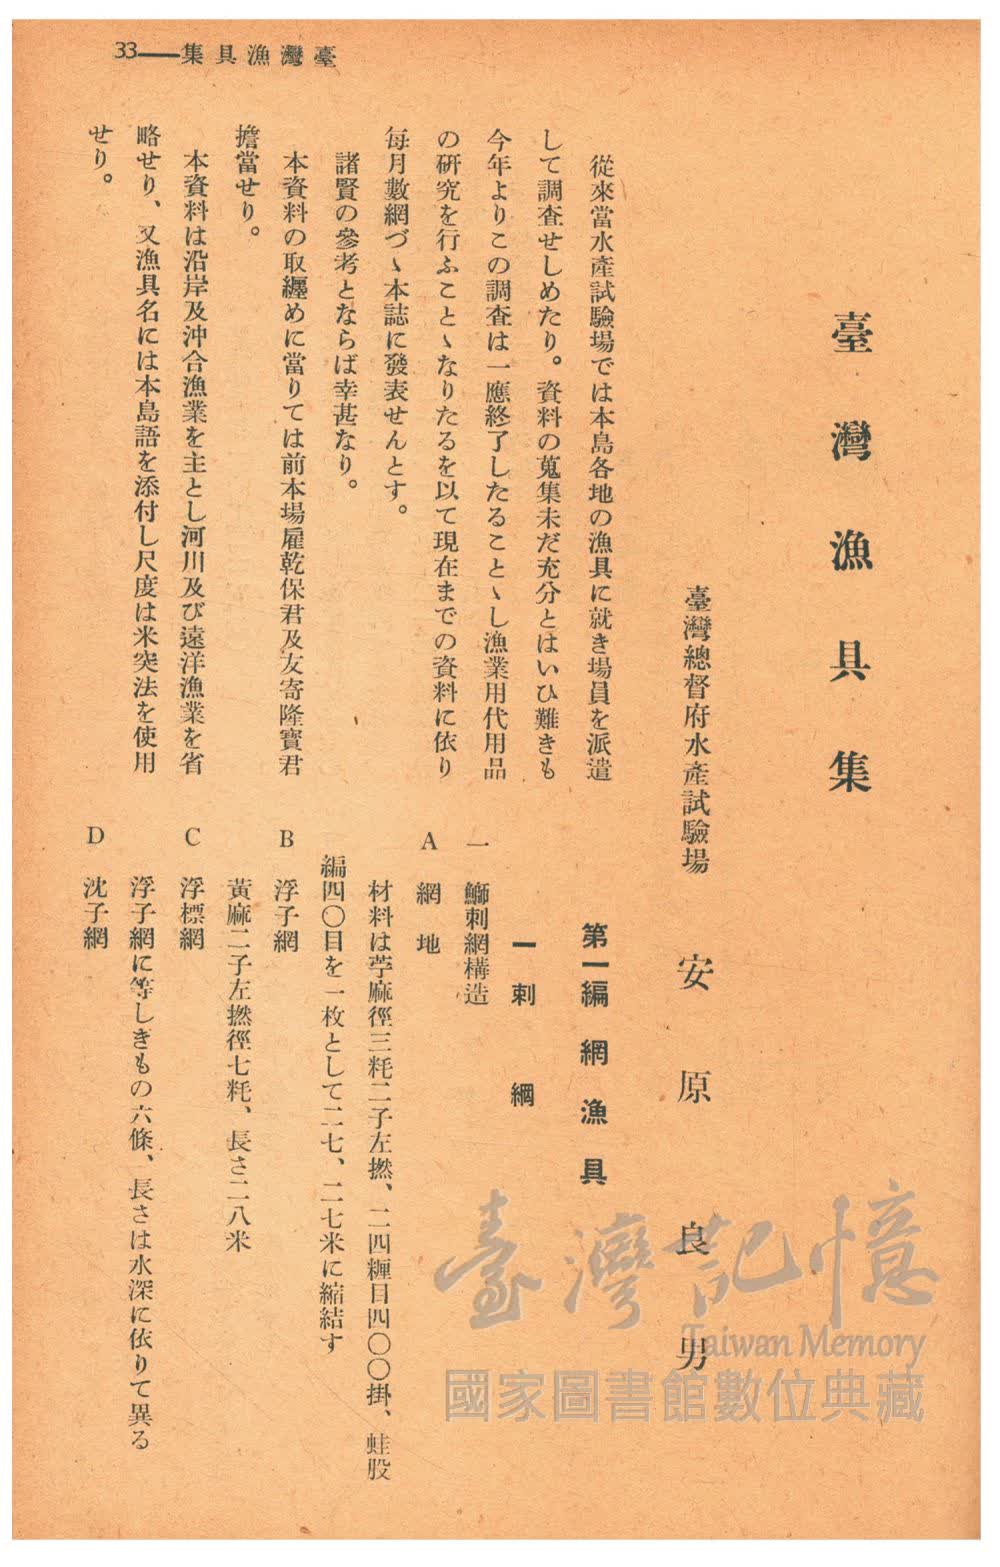 臺灣漁具集——33
臺灣漁具集
臺灣總督府水產試驗場 安原良男
從來當水產試驗場では本島各地の漁具に就き場員を派遣
して調査せしめたり。資料の蒐集未だ充分とはいひ難きも
今年よりこの調査は一應終了したることゝし漁業用代用品
の研究を行ふことゝなりたるを以て現在までの資料に依り
每月數網づゝ本誌に發表せんとす。
諸賢の參考とならば幸甚なり。
本資料の取纒めに當りては前本場雇乾保君及友寄隆寶君
擔當せり。
本資料は沿岸及沖合漁業を主とし河川及び遠洋漁業を省
略せり、又漁具名には本島語を添付し尺度は米突法を使用
せり。
第一編 網漁具
一 刺網
一 鰤刺網構造
A 網地
材料は苧麻徑三粍二子左撚、二四糎目四〇〇掛、蛙股
編四〇目を一枚として二七、二七米に縮結す
B 浮子網
黃麻二子左撚徑七粍、長さ二八米
C 浮標網
浮子網に等しきもの六條、長さは水深に依りて異る
D 沈子網
臺灣記憶
Taiwan Memory
國家圖書館數位典藏